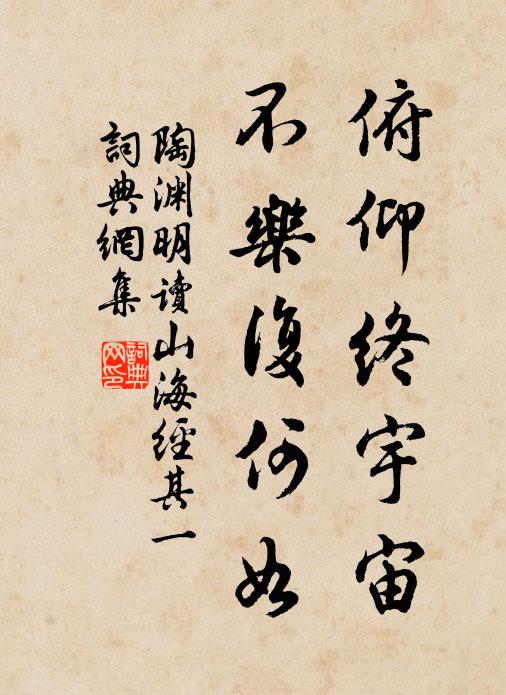 俯仰終宇宙
不樂復何如
陶渊明讀山海經其一
詞典網集
詞典
网印